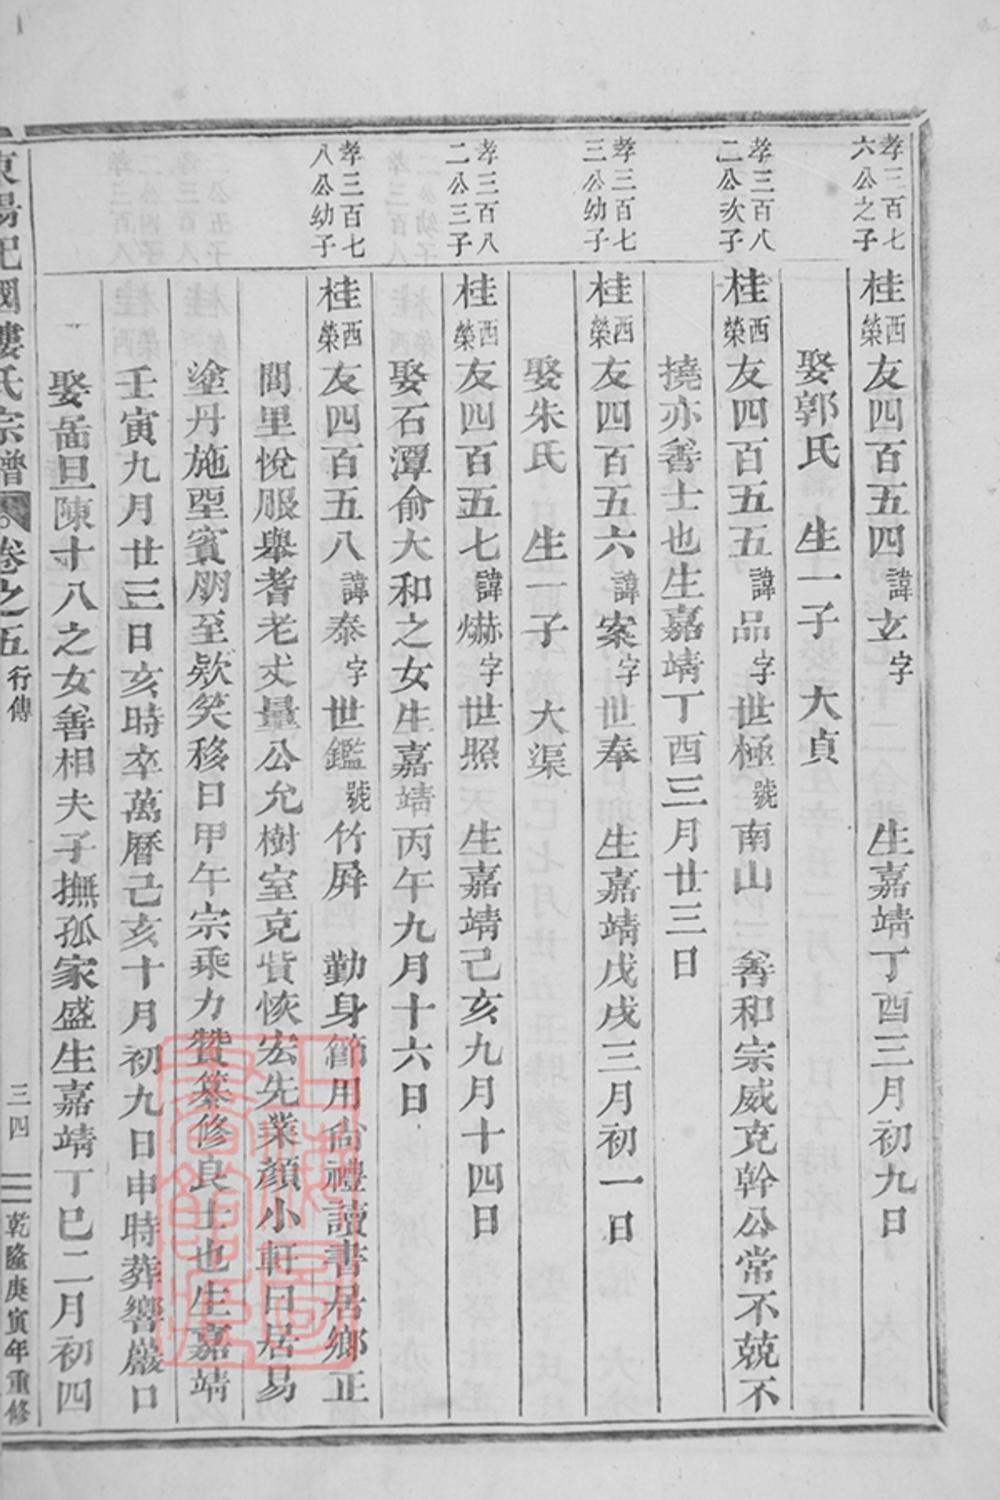 孝三百七六公之子
桂西榮友四百五四諱玄字 生嘉靖丁酉三月初九日
娶郭氏 生一子 大貞
孝三百八二公次子
桂西榮友四百五五諱品字世極號南山 善和宗威克幹公常不競不
撓亦善士也生嘉靖丁酉三月廿三日
孝三百七三公幼子
桂西榮友四百五六諱案字世奉 生嘉靖戊戌三月初一日
娶朱氏 生一子 大渠
孝三百八二公三子
桂西榮友四百五七諱爀字世照 生嘉靖己亥九月十四日
娶石潭俞大和之女生嘉靖丙午九月十六日
孝三百七八公幼子
桂西榮友四百五八諱泰字世鑑號竹屏 勤身節用尚禮讀書居鄉正
閭里悅服舉耆老丈量公允樹室克貲恢宏先業顏小軒曰居易
塗丹施堊賓朋至欵笑移日甲午宗乘力贊纂修良士也生嘉靖
壬寅九月廿三日亥時卒萬曆己亥十月初九日申時葬響巖口
娶畱旦陳十八之女善相夫子撫孤家盛生嘉靖丁巳二月初四
東陽杞國婁氏宗譜 卷之五 行傳 三四 乾隆庚寅年重修